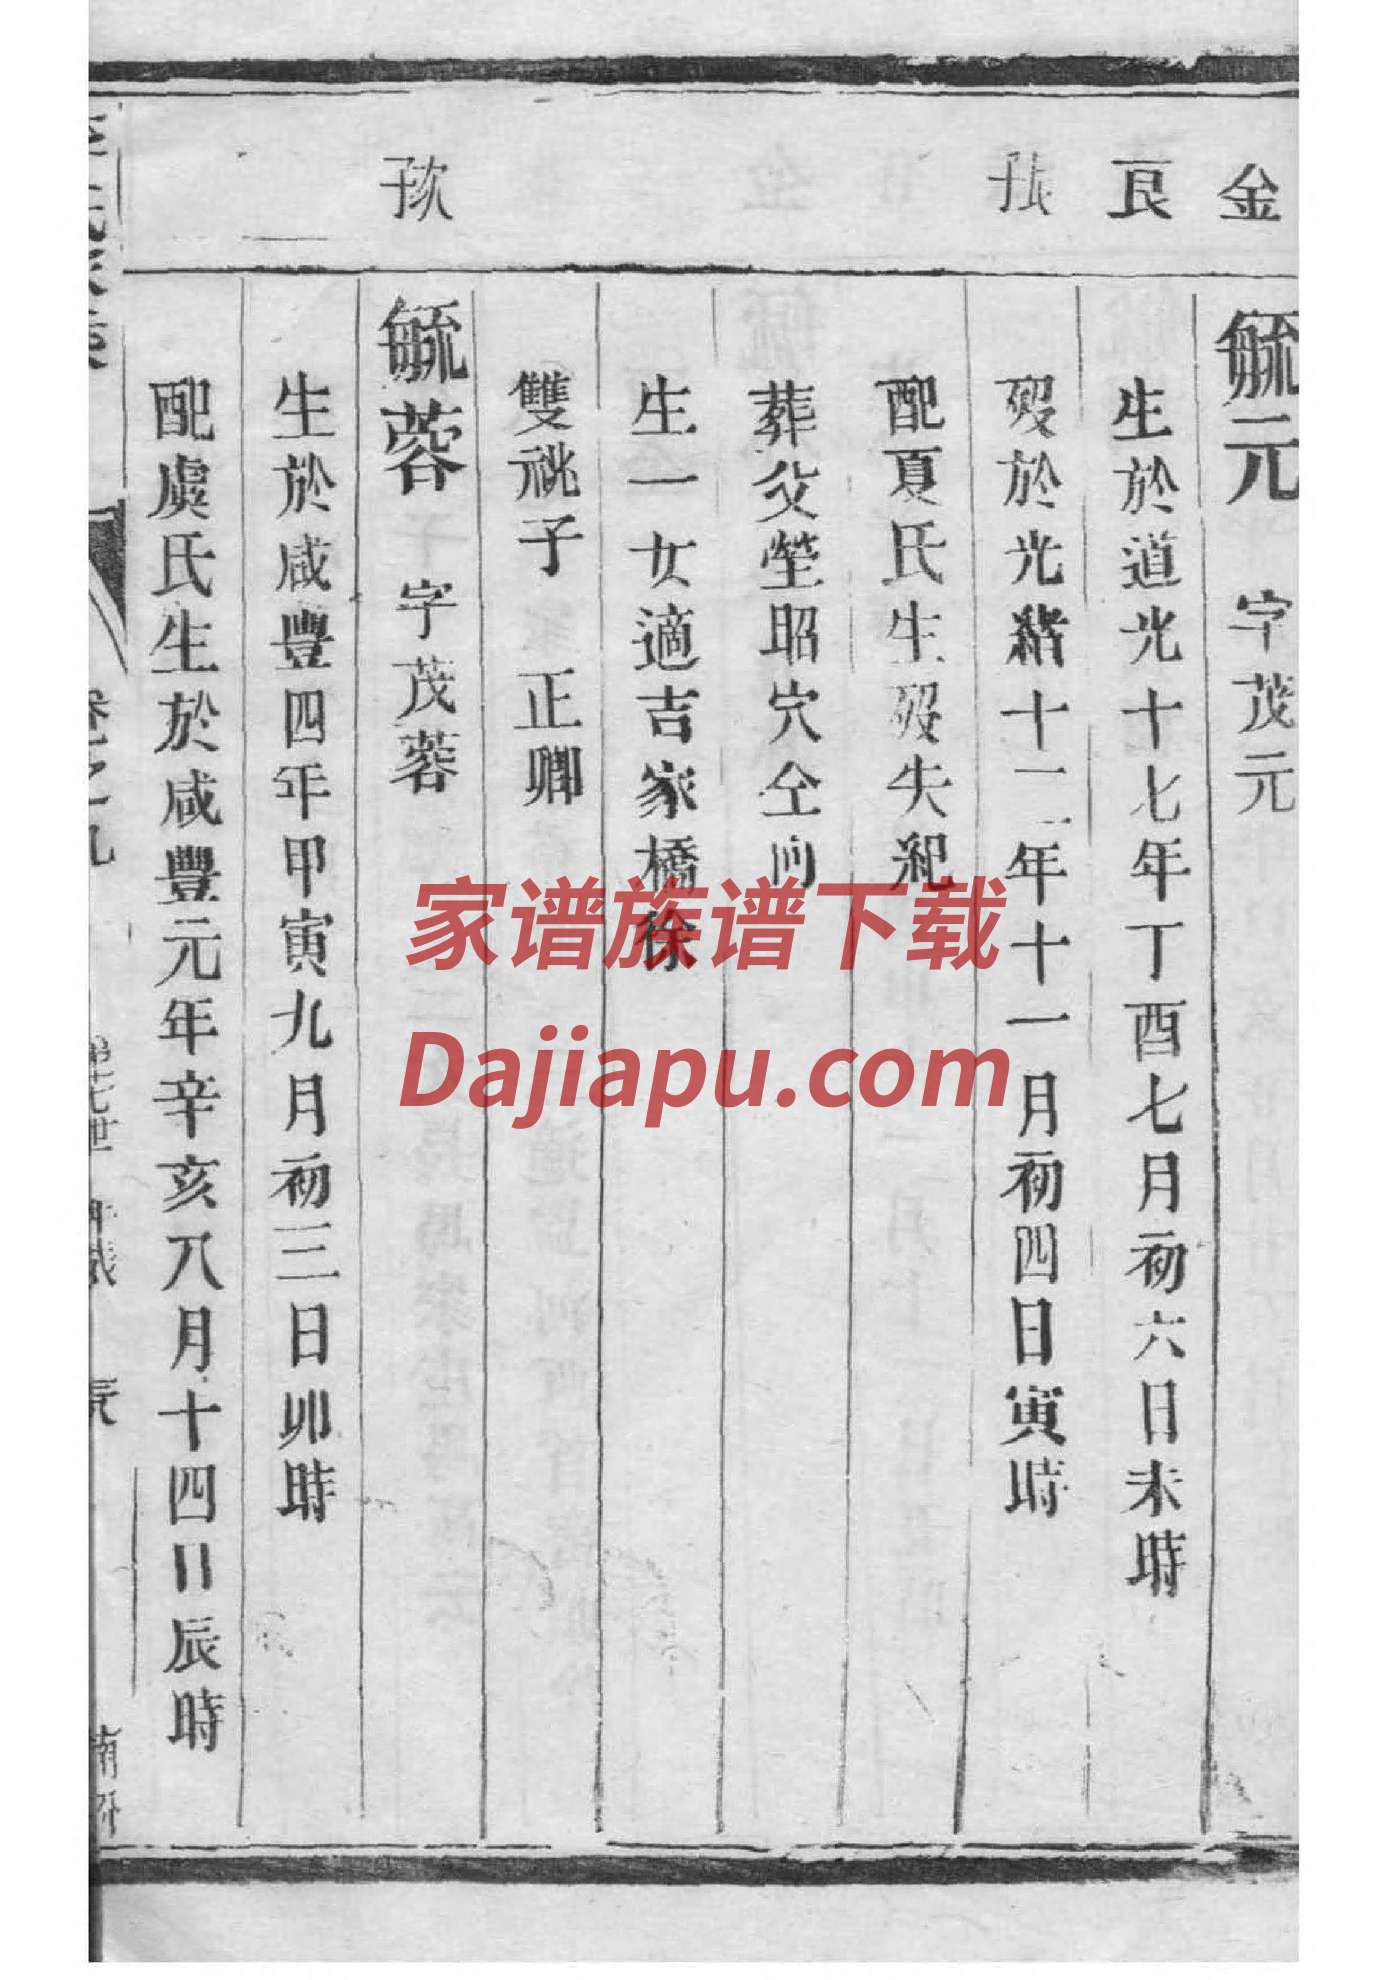 金
良
長子
次子
毓元 字茂元
生於道光十七年丁酉七月初六日未時
歿於光緒十二年十一月初四日寅時
配夏氏生歿失紀
葬父塋昭穴仝向
生一女適吉家橋徐
雙祧子 正卿
毓蓉 字茂蓉
生於咸豐四年甲寅九月初三日卯時
配虞氏生於咸豐元年辛亥八月十四日辰時
卷之九
家谱族谱下载
Dajiapu.com